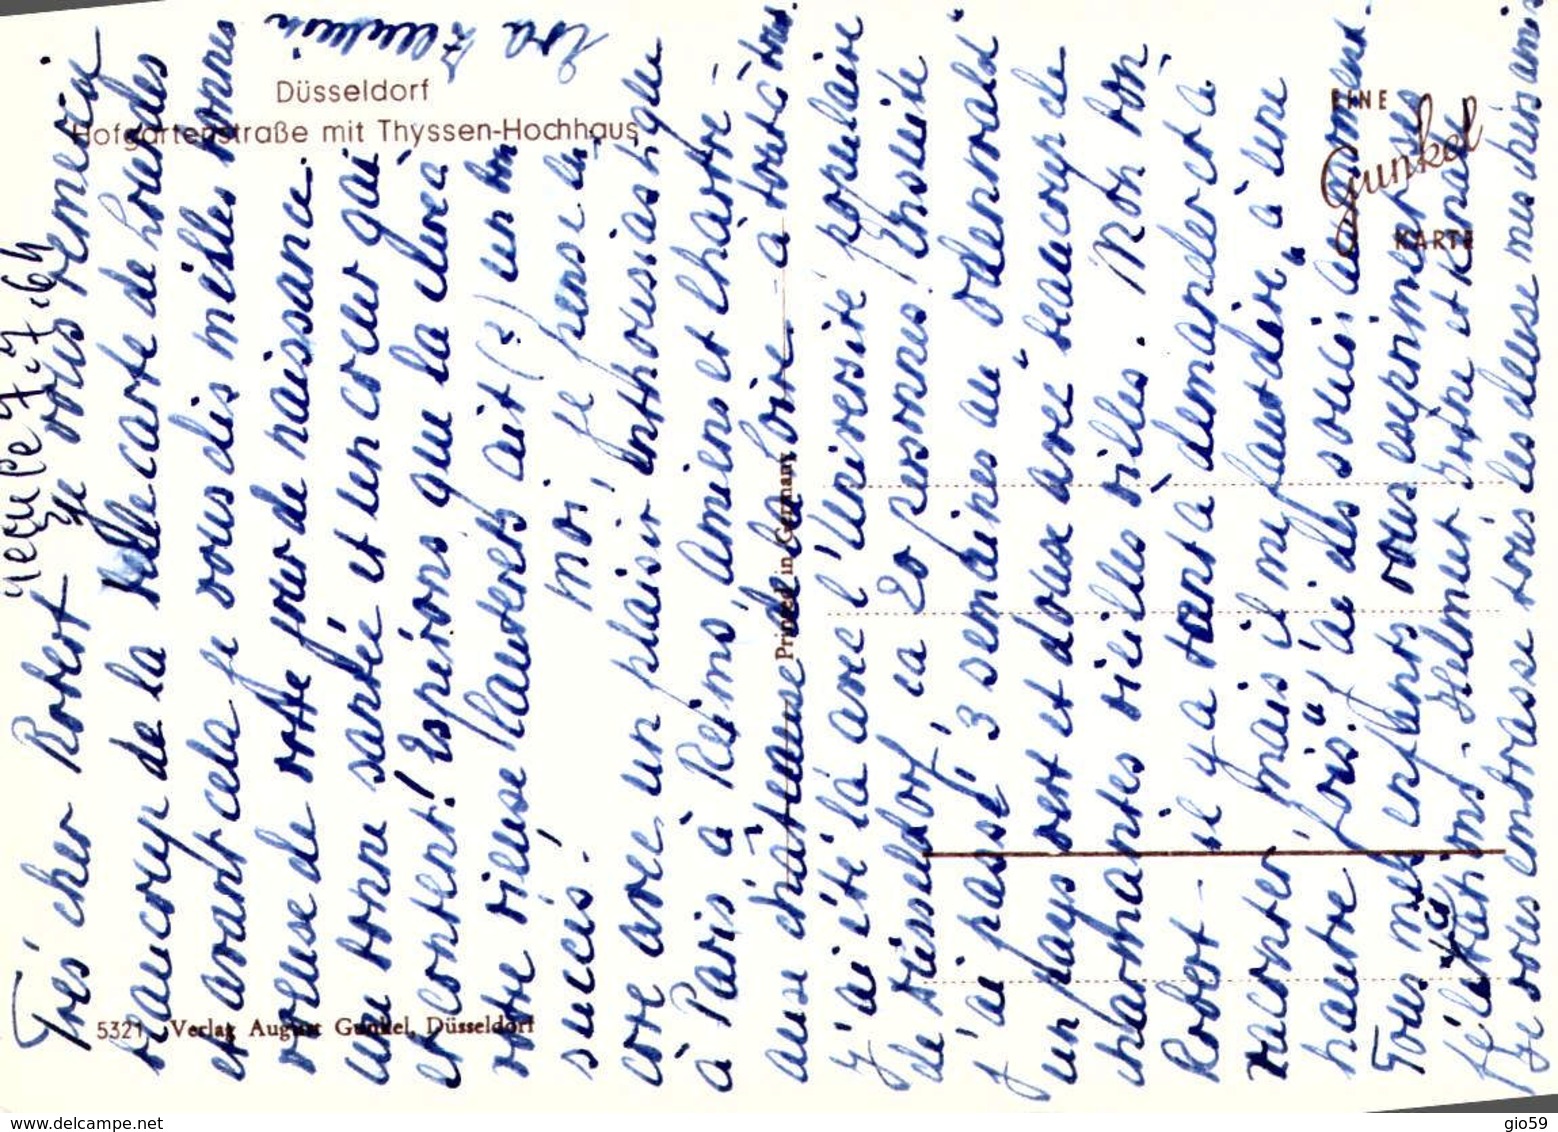 reçu le 7-7-64
Très cher Robert Je vous remercie
beaucoup de la belle carte de Lourdes
et avant cela je vous dis milles bonnes
voeuse de votre jour de naissance.
une bonne santée et un coeur gai
et content! Espérons que la cure a
votre vieuse Lauterets ait (?) un bon
succès. Moi, je pense en-
core avec un plaisir enthousiastique
à Paris à Reims, Amiens et Chartre -
ause châteause de la Loire - à tout à tous.
j'ai été là avec l'Université populaire
de Düsseldorf, ca 20 personnes! Ensuite
j'ai passé 3 semaines au Odenwald"
un pays vert et doux avec beaucoup de
charmantes vieilles villes. Mon bon
Robert - il y a tant à demander et à
raconter, mais il me faut dire "à une
hautre fois" j'ai des soucis au moment.
Tous mes enfants vous expriment ses
félicitations. Helmut Gosine et Renate
Je vous embrasse tous les deuse mes chers amis
Eva
Düsseldorf
Hofgartenstraße mit Thyssen-Hochhaus
EINE
Gunkel
KARTE
Printed in Germany
5321 Verlag August Gunkel, Düsseldorf
www.delcampe.net
gio59